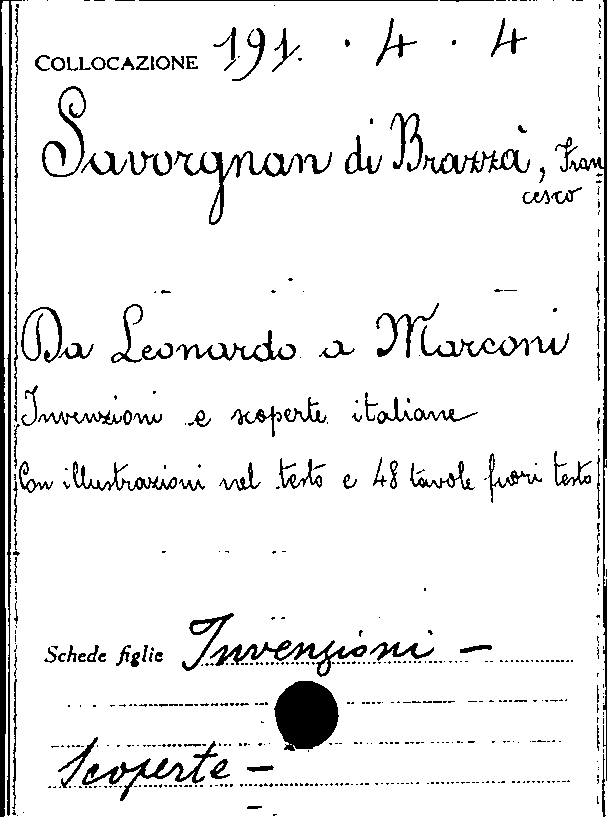 COLLOCAZIONE 191. . 4 . 4
Savorgnan di Brazzà, Fran
cesco
Da Leonardo a Marconi
Invenzioni e scoperte italiane
Con illustrazioni nel testo e 48 tavole fuori testo
Schede figlie Invenzioni —
Scoperte —